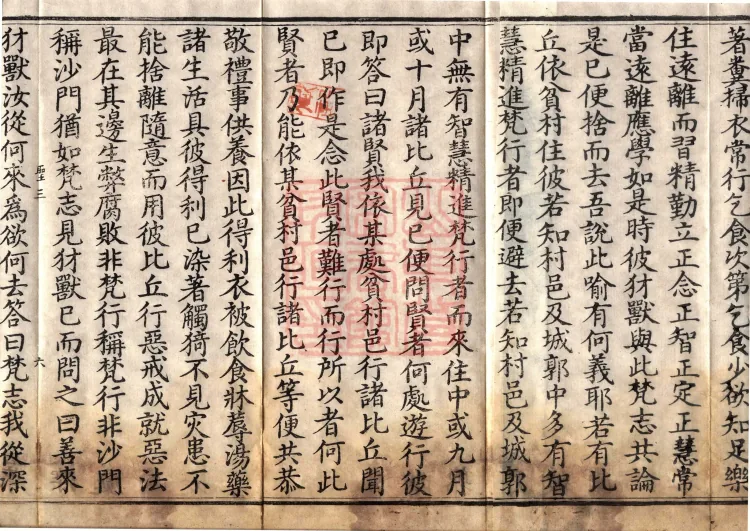 著糞掃衣常行乞食次第乞食少欲知足樂
住遠離而習精勤立正念正智正定正慧常
當遠離應學如是時彼犲獸與此梵志共論
是已便捨而去吾說此喻有何義耶若有比
丘依貧村住彼若知村邑及城郭中多有智
慧精進梵行者即便避去若知村邑及城郭
中無有智慧精進梵行者而來住中或九月
或十月諸比丘見已便問賢者何處遊行彼
即答曰諸賢我依某處貧村邑行諸比丘聞
已即作是念此賢者難行而行所以者何此
賢者乃能依某貧村邑行諸比丘等便共恭
敬禮事供養因此得利衣被飲食牀蓐湯藥
諸生活具彼得利已染著觸猗不見灾患不
能捨離隨意而用彼比丘行惡戒成就惡法
最在其邊生弊腐敗非梵行稱梵行非沙門
稱沙門猶如梵志見犲獸已而問之曰善來
聖三
六
犲獸汝從何來為欲何去答曰梵志我從深